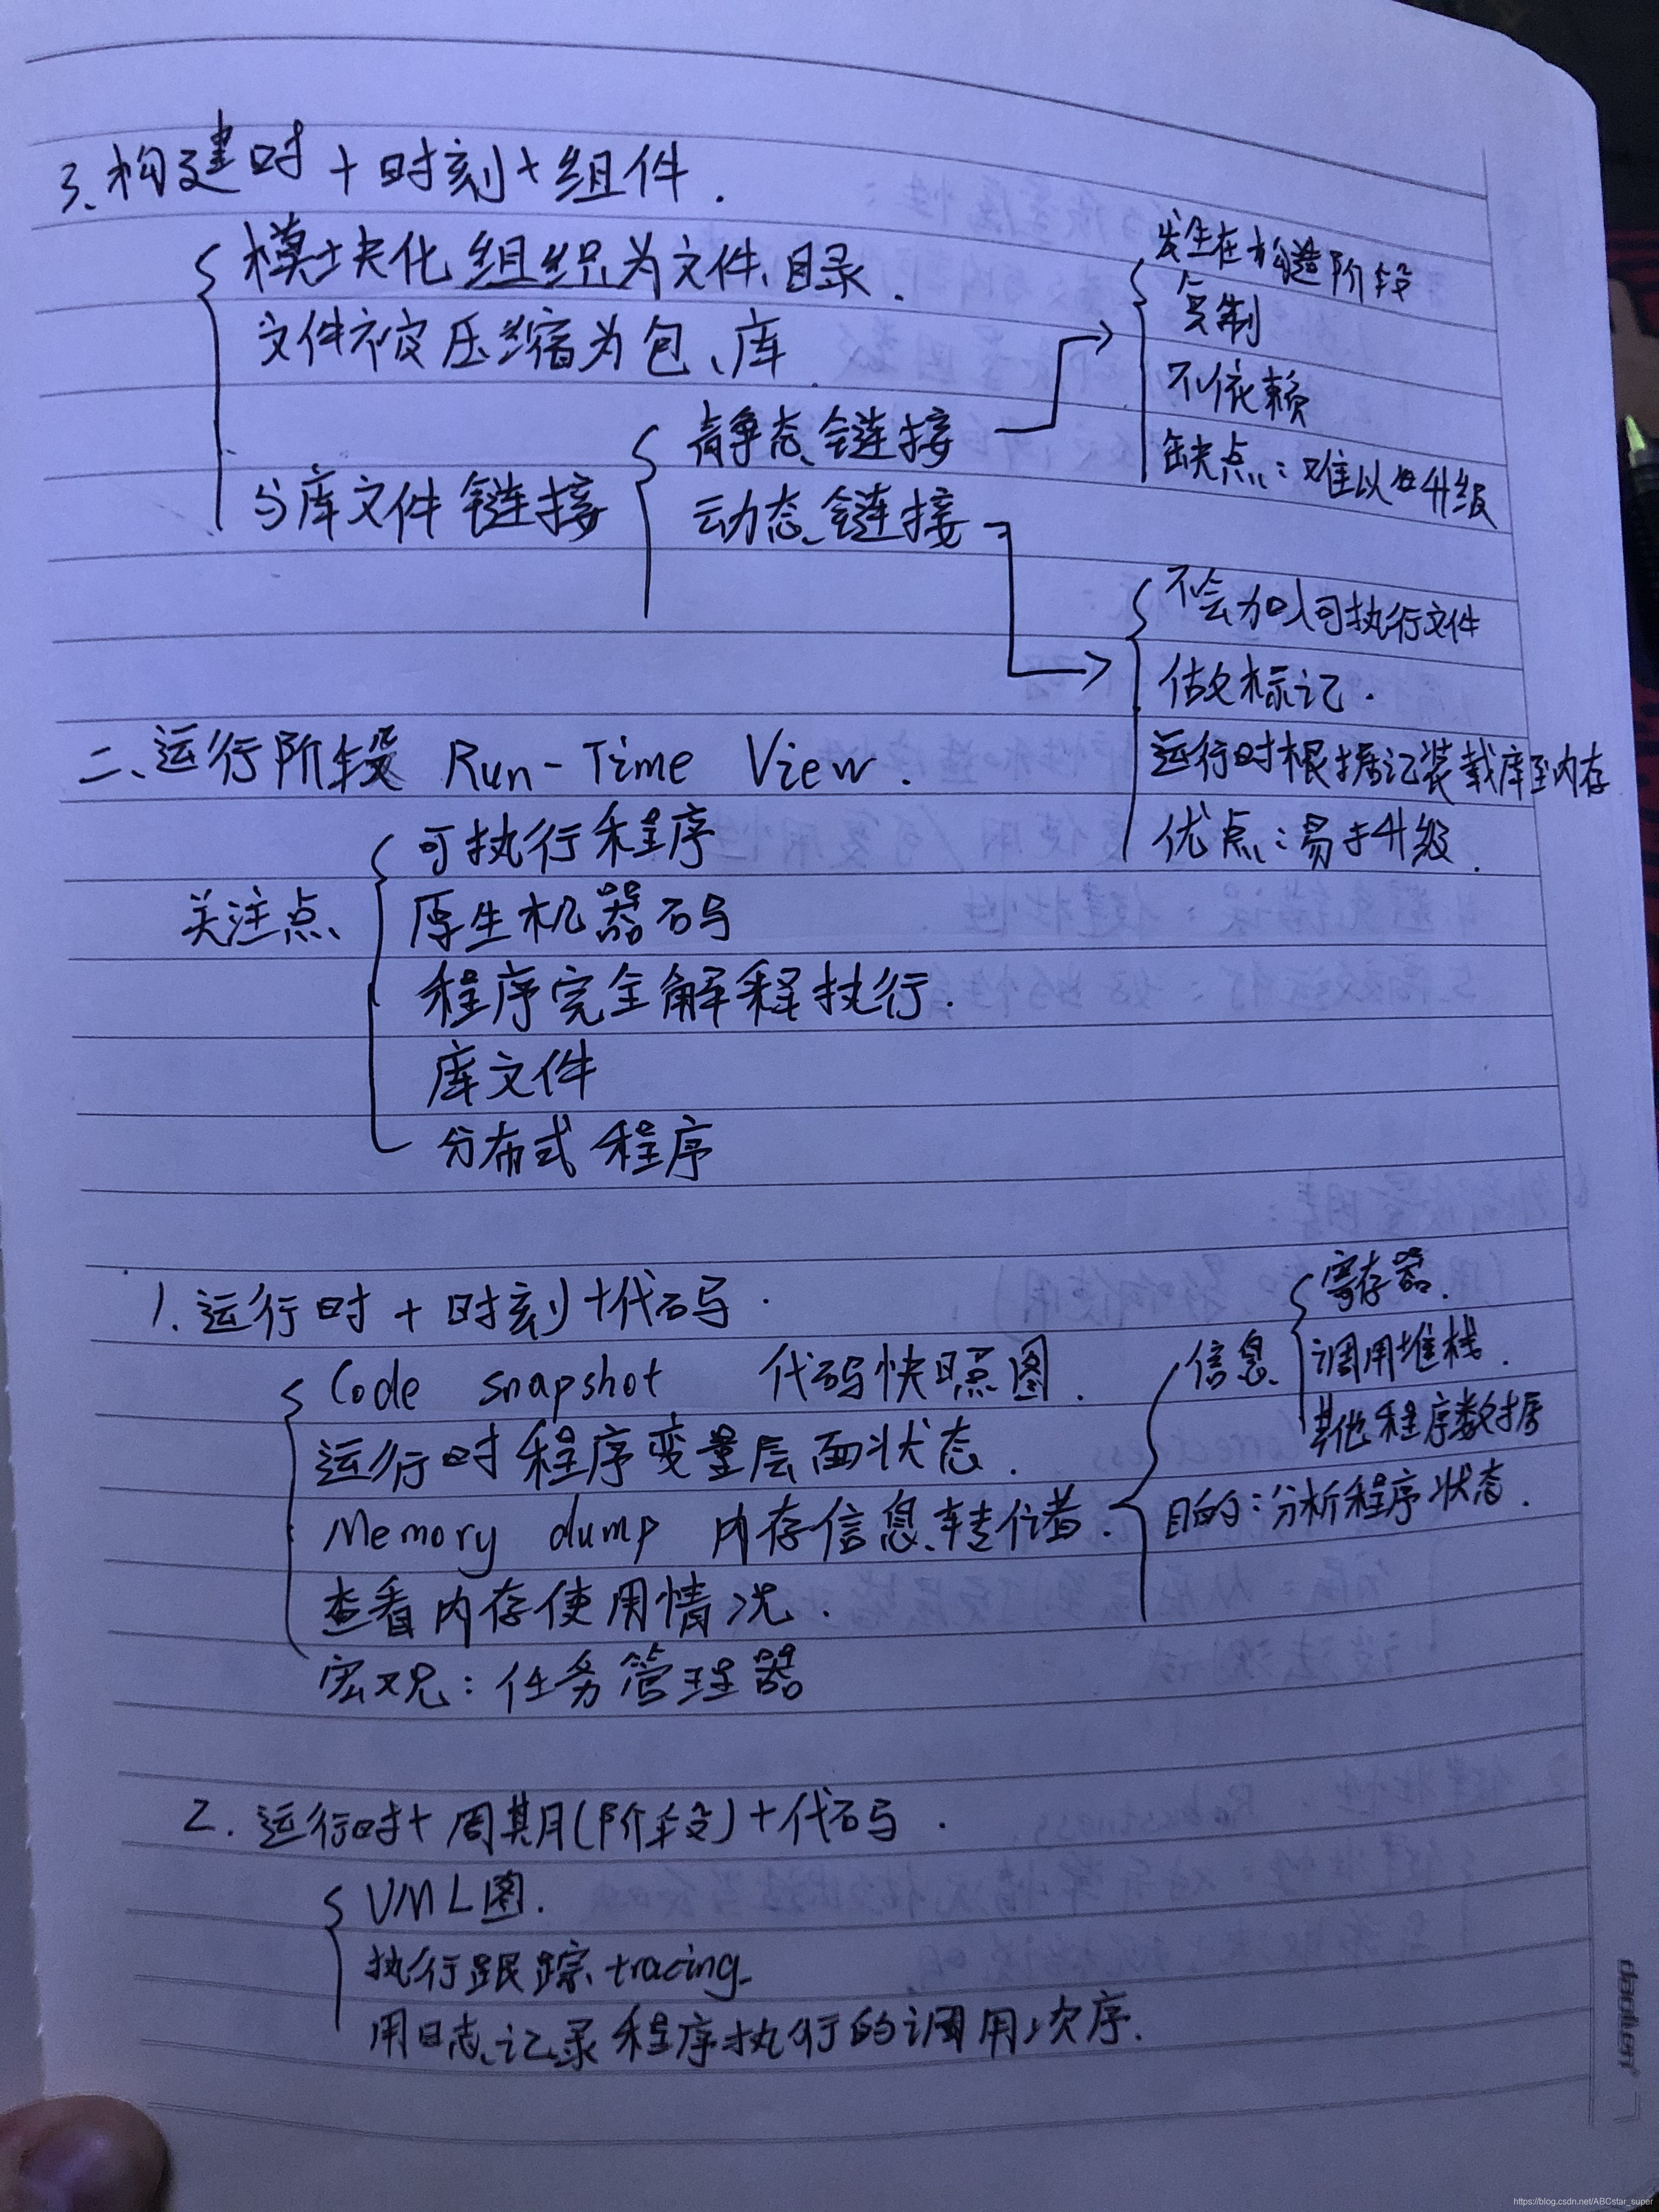 3、构建时+时刻+组件.
模块化组织为文件、目录.
文件被压缩为包、库.
与库文件链接
静态链接
动态链接
发生在构造阶段
复制
不依赖
缺点:难以升级
不会加入可执行文件
做标记.
运行时根据记装载库至内存
优点:易于升级.
二、运行阶段 Run-Time View.
关注点
可执行程序
原生机器码
程序完全解释执行.
库文件
分布式程序
1.运行时+时刻+代码.
Code snapshot 代码快照图.
运行时程序变量层面状态.
Memory dump 内存信息转储.
信息
寄存器.
调用堆栈.
其他程序数据
目的:分析程序状态.
查看内存使用情况.
宏观:任务管理器
2.运行时+周期(阶段)+代码.
UML图.
执行跟踪 tracing
用日志记录程序执行的调用次序.
https://blog.csdn.net/ABCstar_super